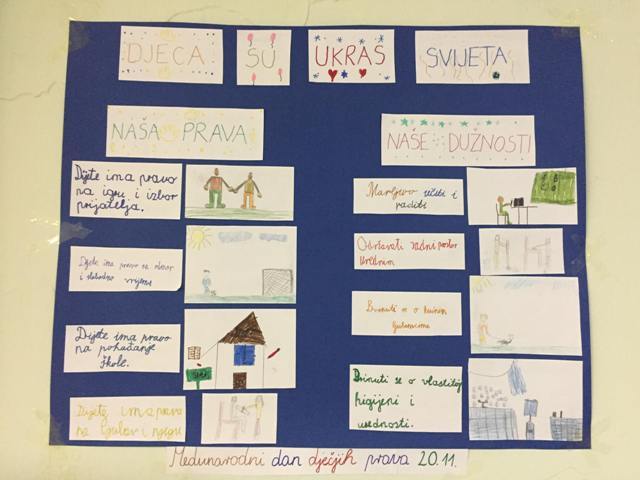 DJECA SU UKRAS SVIJETA
NAŠA PRAVA
Dijete ima pravo
na igru i izbor
prijatelja.
Dijete ima pravo na odmor
i slobodno vrijeme
Dijete ima pravo
na pohađanje
škole.
Dijete ima pravo
na ljubav i njegu
NAŠE DUŽNOSTI
Marljivo učiti i
raditi
Održavati radni prostor
urednim
Brinuti se o kućnim
ljubimcima
Brinuti se o vlastitoj
higijeni i
urednosti.
Međunarodni dan dječjih prava 20.11.